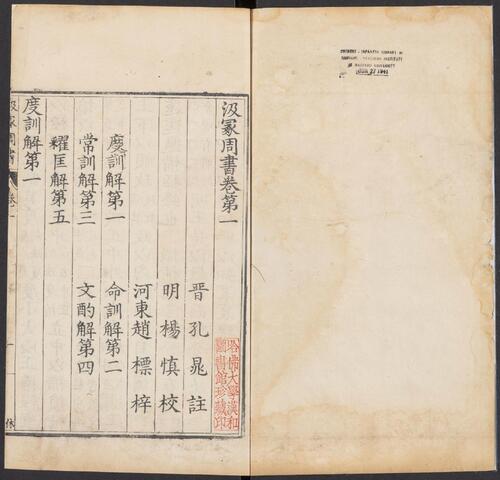 CHINESE - JAPANESE LIBRARY OF
HARVARD - YENCHING INSTITUTE
AT HARVARD UNIVERSITY
JUN 27 1941
汲冢周書卷第一
晉孔晁註
明楊慎校
河東趙標梓
度訓解第一
命訓解第二
常訓解第三
文酌解第四
糴匡解第五
度訓解第一
汲冢周書
卷一
一
哈佛大學漢和
圖書館珍藏印